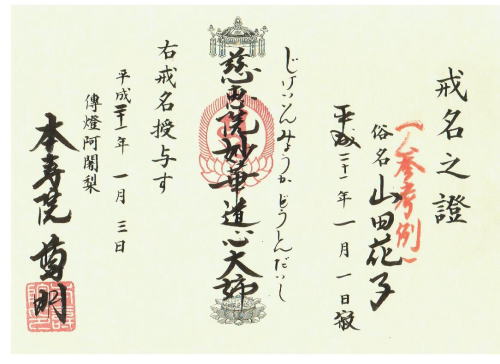 戒名之證
(参考例)
俗名 山田花子
平成二十一年一月一日寂
じけいいんみょうかどうしんだいし
慈恵院妙華道心大姉
右戒名授与す
平成二十一年 一月 三日
傳燈阿闍梨
本寿院